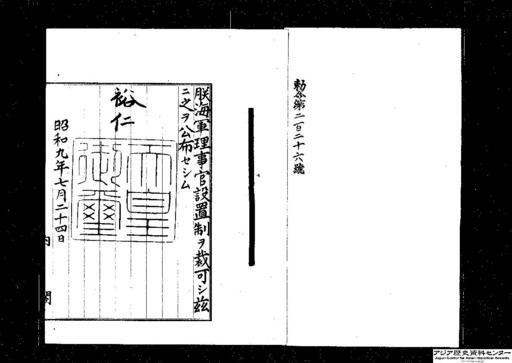 勅令第二百二十六號
朕海軍理事官設置制ヲ裁可シ茲
ニ之ヲ公布セシム
裕仁
天皇
御璽
昭和九年七月二十四日
内閣
アジア歴史資料センター
Japan Center for Asian Historical Records